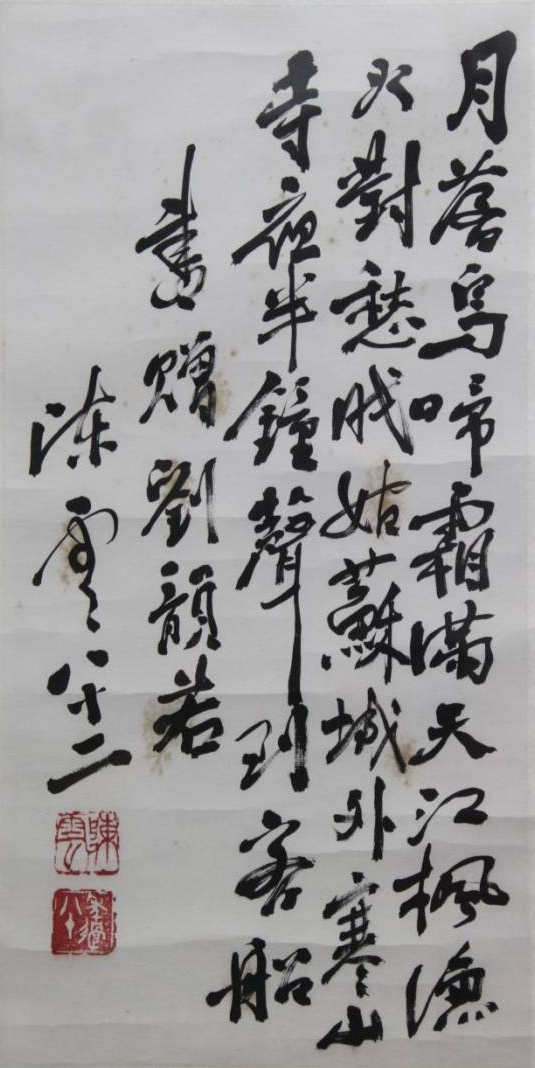 月落烏啼霜滿天江楓漁
火對愁眠姑蘇城外寒山
寺夜半鐘聲到客船
書贈劉韻若
陳雲八十二
陳雲
年過八十